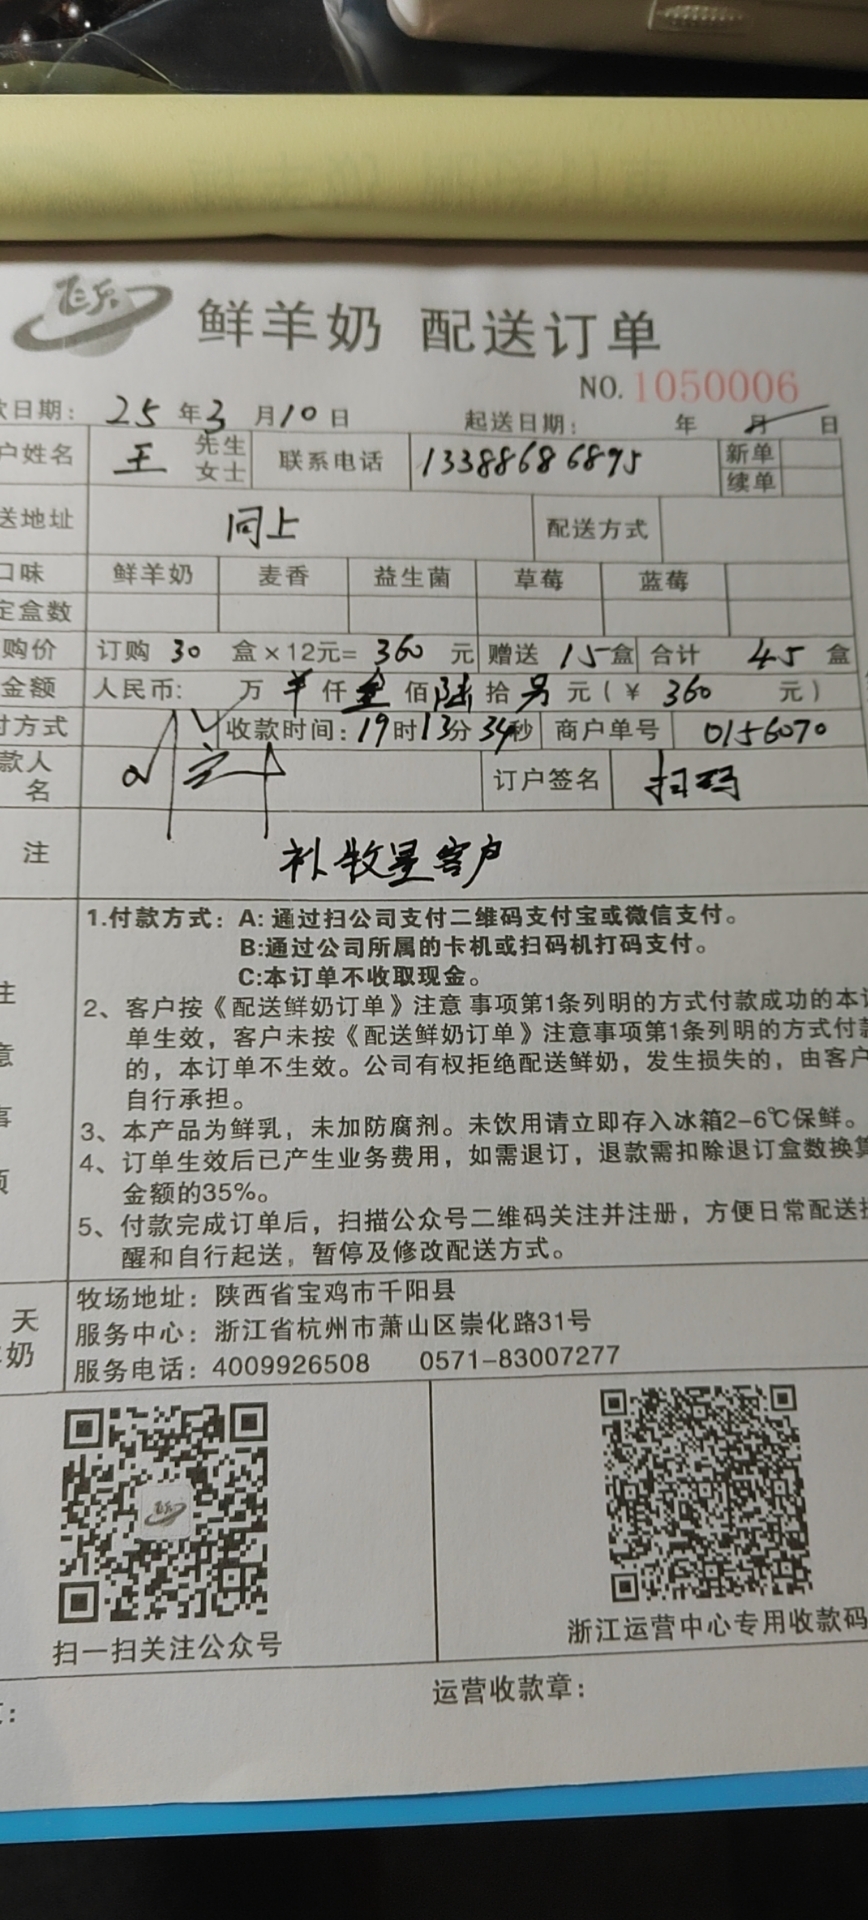 飞天
鲜羊奶 配送订单
NO. 1050006
日期: 25 年 3 月 10 日 起送日期: 年 月 日
户姓名 王 先生 女士 联系电话 13388686895 新单 续单
送地址 同上 配送方式
口味 鲜羊奶 麦香 益生菌 草莓 蓝莓
定盒数
购价 订购 30 盒×12元= 360 元 赠送 15 盒 合计 45 盒
金额 人民币: 万 仟 佰 陆 拾 元(¥ 360 元)
付方式 收款时间: 19 时 13 分 34 秒 商户单号 0156070
款人名 订户签名 扫码
注 补牧星客户
1.付款方式: A: 通过扫公司支付二维码支付宝或微信支付。
B:通过公司所属的卡机或扫码机打码支付。
C:本订单不收取现金。
2、客户按《配送鲜奶订单》注意 事项第1条列明的方式付款成功的本订
单生效，客户未按《配送鲜奶订单》注意事项第1条列明的方式付款
的，本订单不生效。公司有权拒绝配送鲜奶，发生损失的，由客户
自行承担。
3、本产品为鲜乳，未加防腐剂。未饮用请立即存入冰箱2-6℃保鲜。
4、订单生效后已产生业务费用，如需退订，退款需扣除退订盒数换算
金额的35%。
5、付款完成订单后，扫描公众号二维码关注并注册，方便日常配送提
醒和自行起送，暂停及修改配送方式。
注意事项
天
羊奶
牧场地址: 陕西省宝鸡市千阳县
服务中心: 浙江省杭州市萧山区崇化路31号
服务电话: 4009926508 0571-83007277
扫一扫关注公众号
浙江运营中心专用收款码
运营收款章: